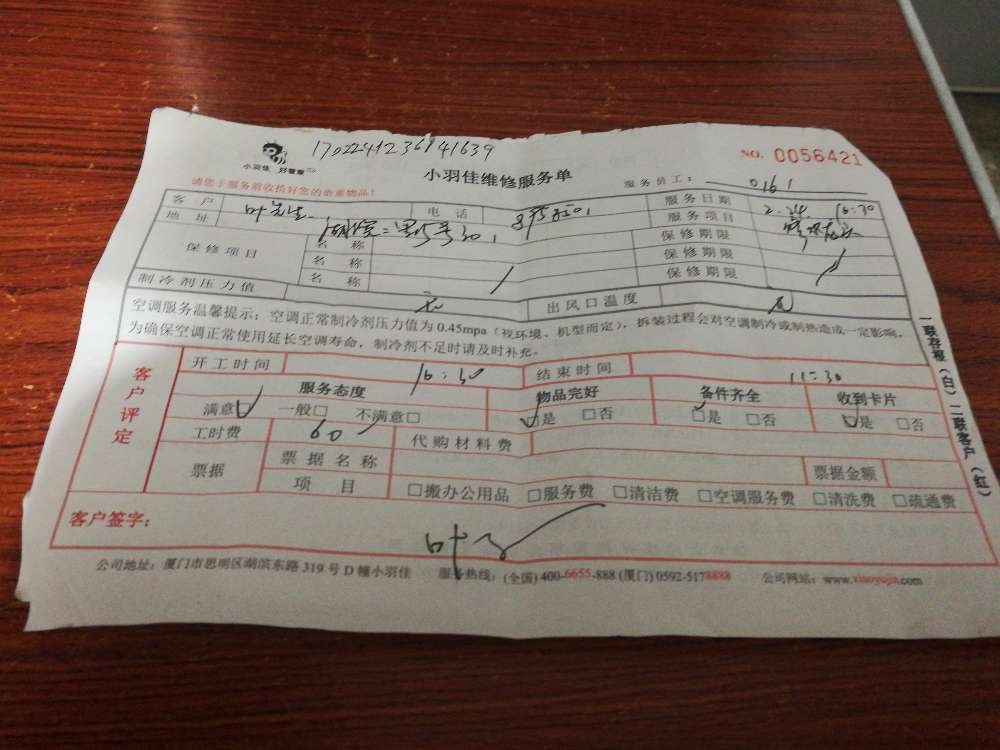 1702241236941639
小羽佳 好管家
小羽佳维修服务单
NO. 0056421
请您于服务前收拾好您的贵重物品！
服务员工： 0161
客户 叶先生
电话
服务日期 2.24 16:30
地址
服务项目 修水龙头
保修项目
名称 保修期限
名称 保修期限
名称 保修期限
制冷剂压力值 无
出风口温度 无
空调服务温馨提示：空调正常制冷剂压力值为0.45mpa（视环境、机型而定），拆装过程会对空调制冷或制热造成一定影响，
为确保空调正常使用延长空调寿命，制冷剂不足时请及时补充。
客户评定
开工时间 16:30
结束时间 :30
服务态度 物品完好 备件齐全 收到卡片
满意☑ 一般□ 不满意□ ☑是 □否 ☑是 □否 ☑是 □否
工时费 60 代购材料费
票据 票据名称 票据金额
项目 □搬办公用品 □服务费 □清洁费 □空调服务费 □清洗费 □疏通费
客户签字： 叶
一联存根（白）二联客户（红）
公司地址：厦门市思明区湖滨东路319号D幢小羽佳 服务热线：(全国)400-6655-888 (厦门)0592-5178888 公司网站：www.xiaoyujia.com